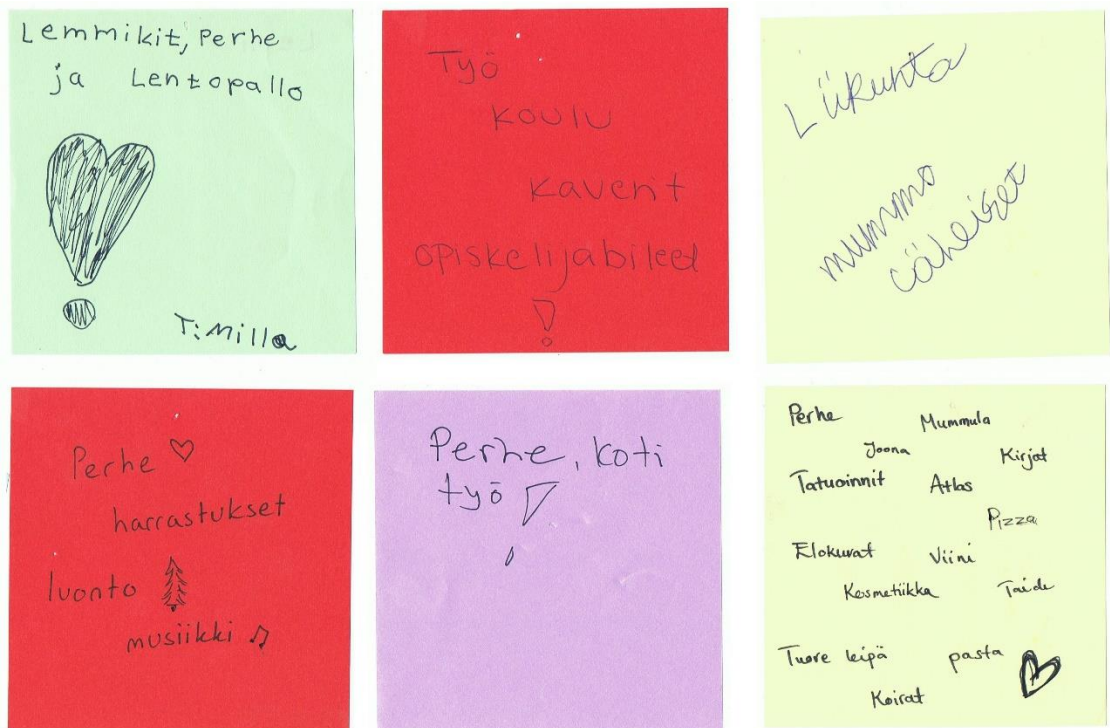 Lemmikit, Perhe
ja Lentopallo
T: Milla
Työ
koulu
kaverit
opiskelijabileet
!
Liikunta
mummo
läheiset
Perhe
harrastukset
luonto
musiikki
Perhe, koti
työ !
Perhe Mummula
Joona Kirjat
Tatuoinnit Atlas
Pizza
Elokuvat Viini
Kosmetiikka Taide
Tuore leipä pasta
Koirat